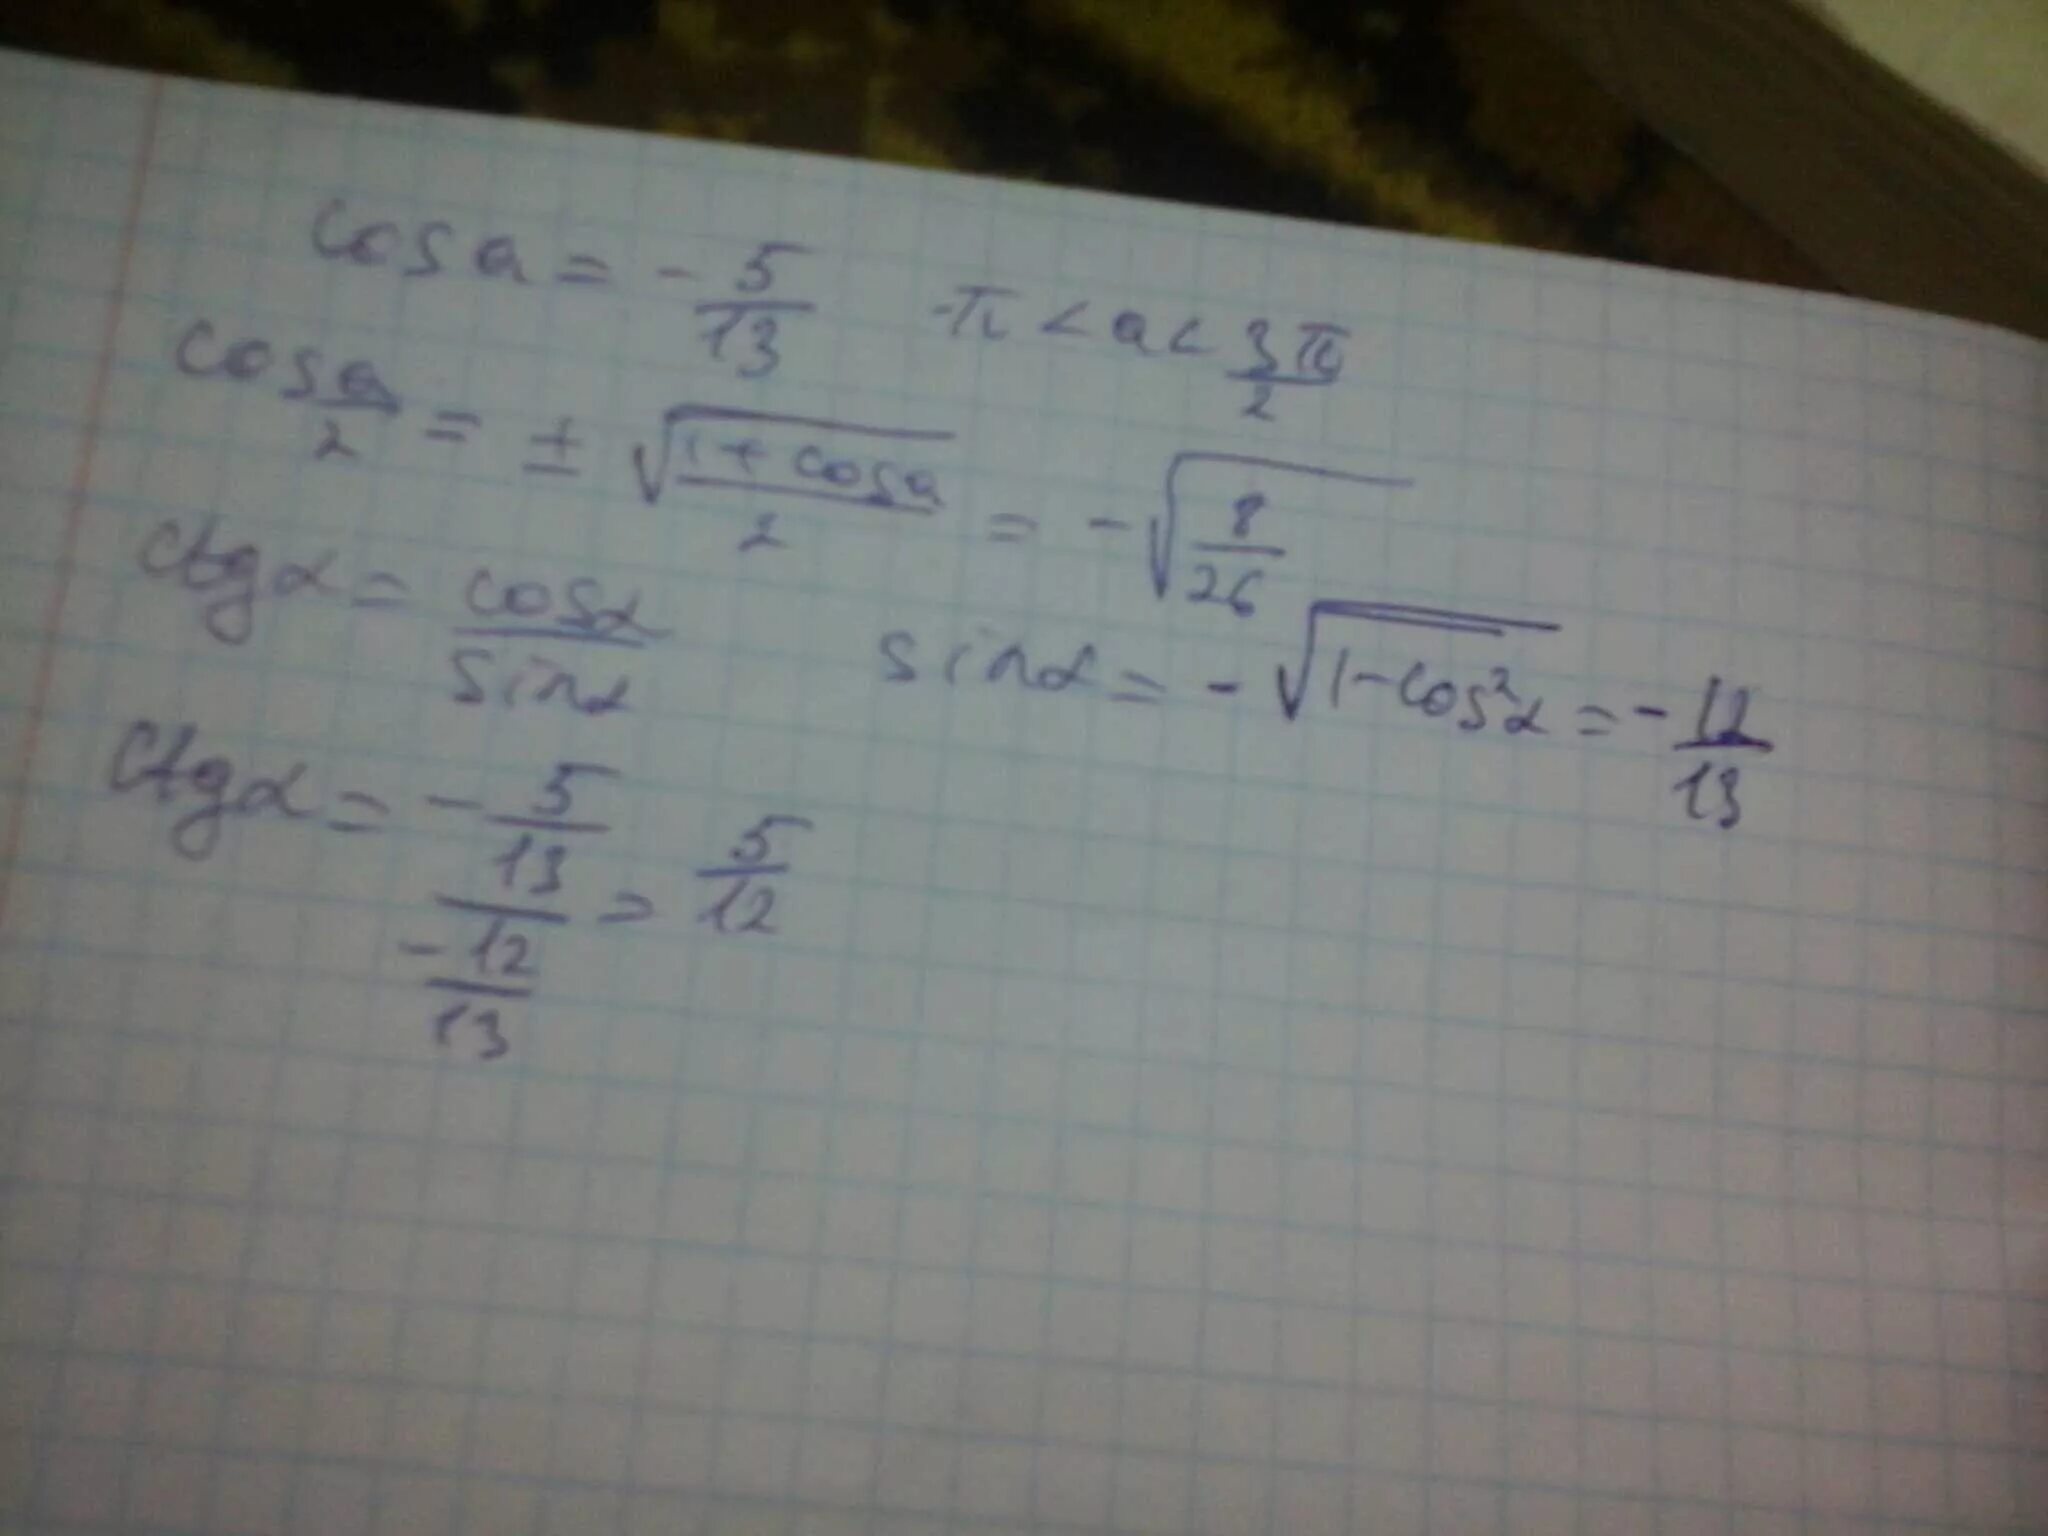 cos a = - 5/13   π < a < 3π/2
cos a/2 = ± √((1 + cos a)/2) = - √(8/26)
ctg α = cos α / sin α   sin α = - √(1 - cos² α) = - 12/13
ctg α = (- 5/13) / (- 12/13) = 5/12